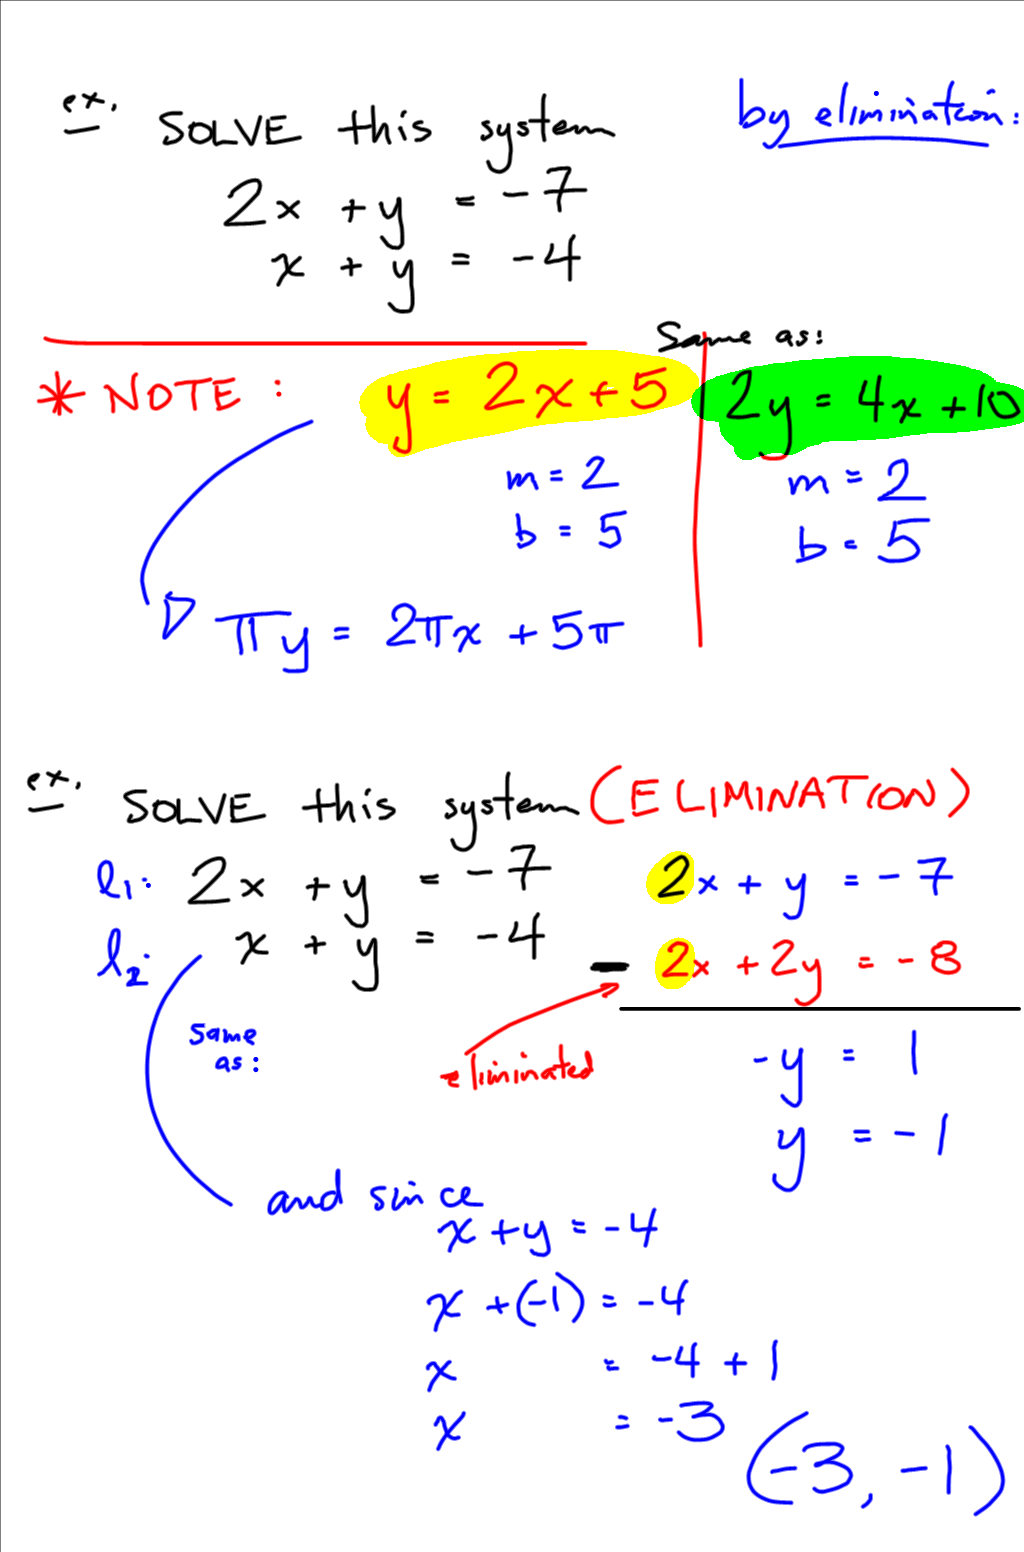 ex. SOLVE this system by elimination:
2x + y = -7
x + y = -4
Same as:
* NOTE: y = 2x + 5 2y = 4x + 10
m = 2 m = 2
b = 5 b = 5
πy = 2πx + 5π
ex. SOLVE this system (ELIMINATION)
l1: 2x + y = -7 2x + y = -7
l2: x + y = -4 - 2x + 2y = -8
same
as: eliminated -y = 1
y = -1
and since
x + y = -4
x + (-1) = -4
x = -4 + 1
x = -3
(-3, -1)